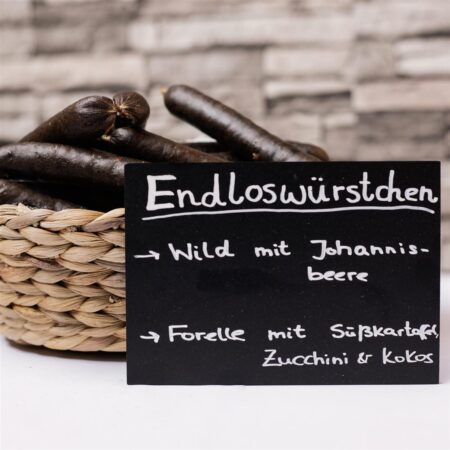 Endloswürstchen
→ Wild mit Johannis-
beere
→ Forelle mit Süßkartoffel,
Zucchini & Kokos